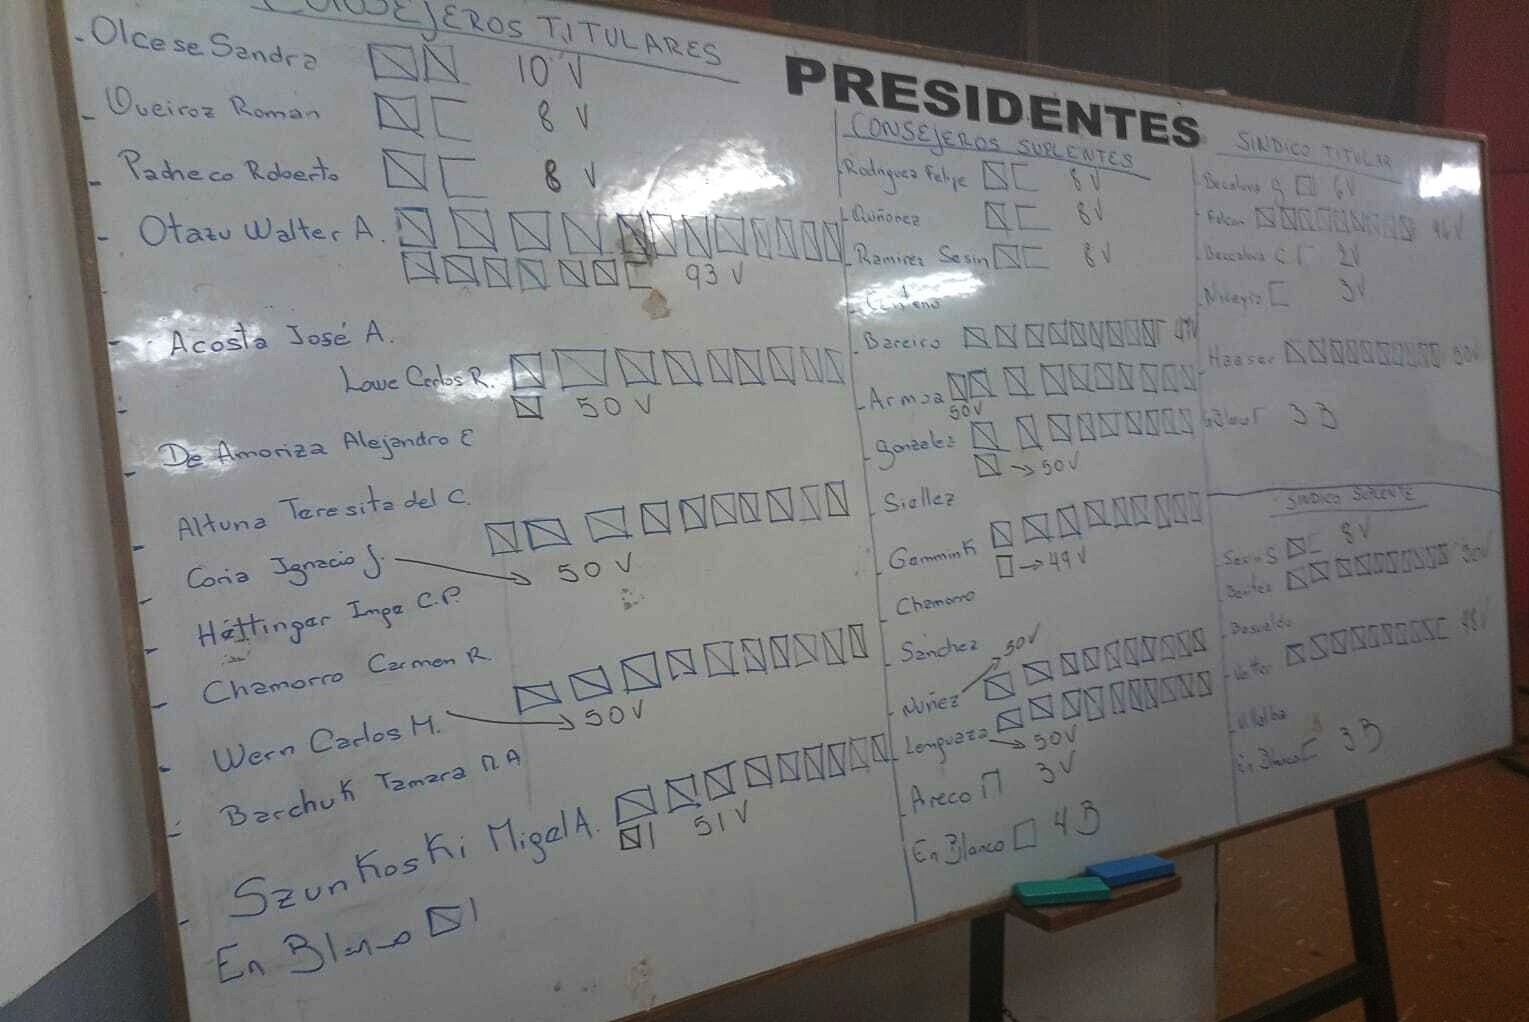 CONSEJEROS TITULARES
- Olcese Sandra 10 V
- Queiroz Roman 8 V
- Pacheco Roberto 8 V
- Otazu Walter A.
93 V
- Acosta José A.
Lowe Carlos R.
50 V
- De Amoriza Alejandro E
- Altuna Teresita del C.
- Coria Ignacio J. → 50 V
- Hettinger Inge C.P.
- Chamorro Carmen R.
- Wern Carlos M. → 50 V
- Barchuk Tamara M A
- Szunkoski Migel A.
51 V
En Blanco
PRESIDENTES
CONSEJEROS SUPLENTES
- Rodriguez Felipe 8 V
- Quiñonez 8 V
- Ramirez Sesin 8 V
- Centeno
- Bareiro 49V
- Armoa
50V
- Gonzalez
→ 50 V
- Siellez
- Gommink
→ 49 V
- Chamorro
- Sanchez 50 V
- Nuñez
- Lenguaza
→ 50 V
- Areco 3 V
En Blanco 4 B
SINDICO TITULAR
6 V
46 V
2V
3V
Haaser 50V
3 B
SINDICO SUPLENTE
8 V
Benitez 50V
Basualdo
48V
Villalba
En Blanco 3 B